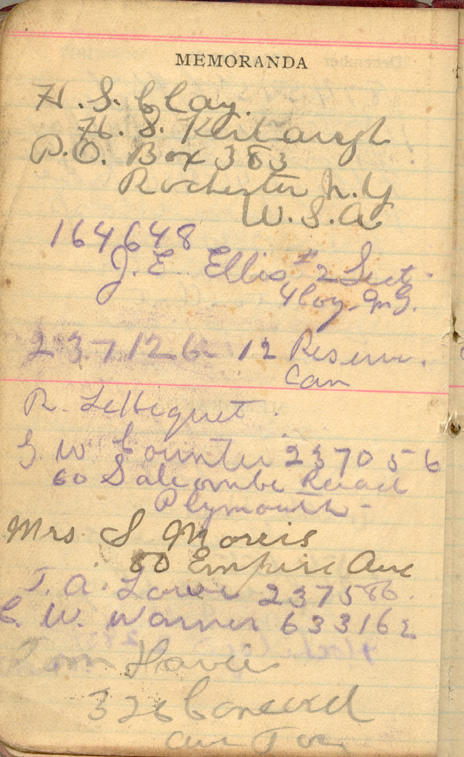 MEMORANDA
H. S. Clay.
H. S. Kerbaugh
P.O. Box 383
Rochester N.Y
U.S.A
164648
J. E. Ellis #2 Sect.
4 Coy. M.G.
237126 12 Reserve.
Can
R.
G. W. Counter 237056
60 Salcombe Road
Plymouth -
Mrs. S Morris
50 Empire Ave
T. A. Lower 237586.
C. W. Warner 633162
Tom
326 Concord
Ave Tor